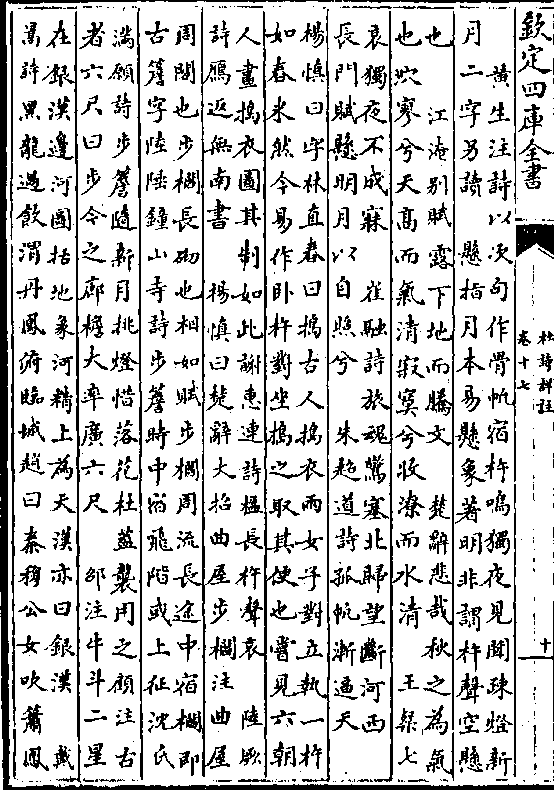 欽定四庫全書
杜詩詳註
卷十七
十
黄生注詩以次句作骨帆宿杵鳴獨夜見聞疎燈新
月二字另讀 懸指月本易懸象著明非謂杵聲空懸
也 江淹别賦露下地而騰文 楚辭悲哉秋之為氣
也泬寥兮天高而氣清寂寞兮收潦而水清 王粲七
哀獨夜不成寐 崔融詩旅魂驚塞北歸望斷河西
長門賦懸明月以自照兮 朱超道詩孤帆漸逼天
楊慎曰字林直舂曰搗古人搗衣兩女子對立執一杵
如舂米然今易作卧杵對坐搗之取其便也嘗見六朝
人畫搗衣圖其制如此謝惠連詩櫩長杵聲哀 陸厥
詩鴈返無南書 楊慎曰楚辭大招曲屋步櫩注曲屋
周閣也步櫩長砌也相如賦步櫩周流長途中宿櫩即
古簷字陸倕鍾山寺詩步簷時中宿飛階或上征沈氏
滿願詩步簷隨新月挑燈惜落花杜蓋襲用之顧注古
者六尺曰步今之廊檐大率廣六尺 邵注牛斗二星
在銀漢邊河圖括地象河精上為天漢亦曰銀漢 戴
暠詩黒龍過飲渭丹鳳俯臨城趙曰秦穆公女吹簫鳳